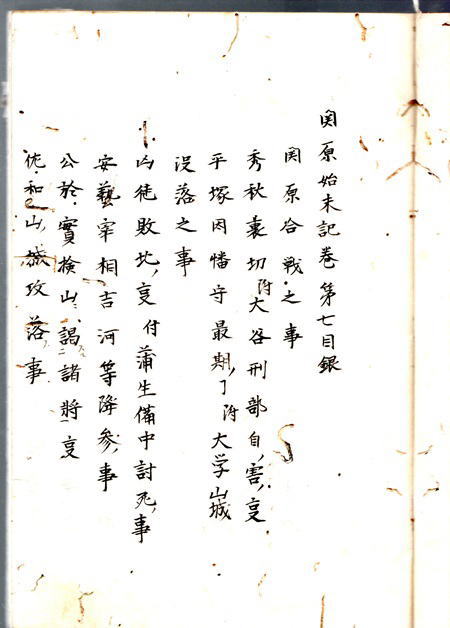 関原始末記巻第七目録
関原合戦之事
秀秋裏切附大谷刑部自害亊
平塚因幡守最期ノ亊附大学山城
没落之事
凶徒敗北ノ亊付蒲生備中討死ノ事
安藝宰相吉河等降参ノ事
公於テ實検山ニ謁スル諸将ニ亊
佐和山ノ城攻落ス事